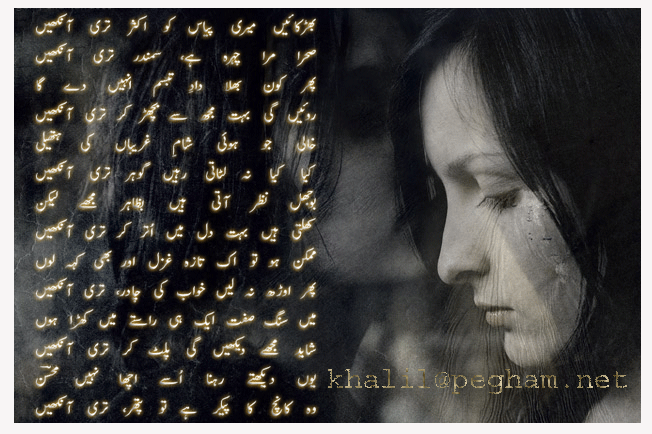 بھڑکائیں میری پیاس کو اکثر تری آنکھیں
صحرا مرا چہرہ ہے، سمندر تری آنکھیں
پھر کون بھلا دادِ تبسم انہیں دے گا
روئیں گی بہت مجھ سے بچھڑ کر تری آنکھیں
خالی جو ہوئی شامِ غریباں کی ہتھیلی
کیا کیا نہ لٹاتی رہیں گوہر تری آنکھیں
بوجھل نظر آتی ہیں بظاہر مجھے لیکن
کھلتی ہیں بہت دل میں اُتر کر تری آنکھیں
ممکن ہو تو اک تازہ غزل اور بھی کہہ لوں
پھر اوڑھ نہ لیں خواب کی چادر، تری آنکھیں
میں سنگ صفت ایک ہی راستے میں کھڑا ہوں
شاید مجھے دیکھیں گی پلٹ کر تری آنکھیں
یوں دیکھتے رہنا اُسے اچھا نہیں محسنؔ
وہ کانچ کا پیکر ہے تو پتھر، تری آنکھیں
khalil@pegham.net